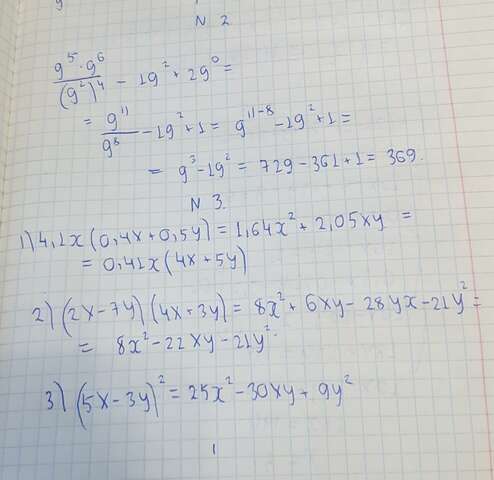 N 2
9⁵·9⁶/(9²)⁴ − 19² + 29⁰ =
= 9¹¹/9⁸ − 19² + 1 = 9¹¹⁻⁸ − 19² + 1 =
= 9³ − 19² = 729 − 361 + 1 = 369.
N 3.
1) 4,1x(0,4x + 0,5y) = 1,64x² + 2,05xy =
= 0,41x(4x + 5y)
2) (2x − 7y)(4x + 3y) = 8x² + 6xy − 28yx − 21y² =
= 8x² − 22xy − 21y².
3) (5x − 3y)² = 25x² − 30xy + 9y²